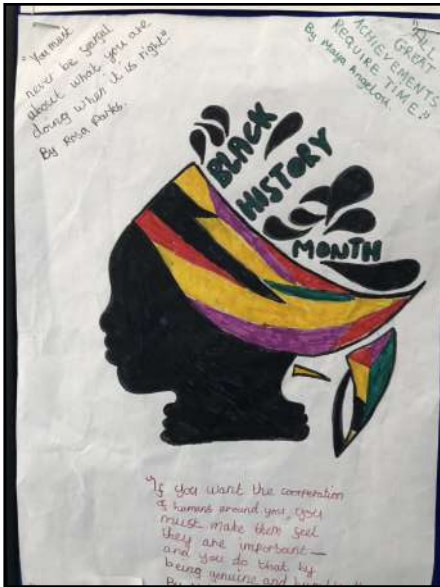 "You must
never be fearful
about what you are
doing when it is right".
By Rosa Parks.
"ALL
GREAT
ACHIEVEMENTS
REQUIRE TIME."
By Maya Angelou
BLACK
HISTORY
MONTH
"If you want the cooperation
of humans around you, you
must make them feel
they are important—
and you do that by
being genuine and
By